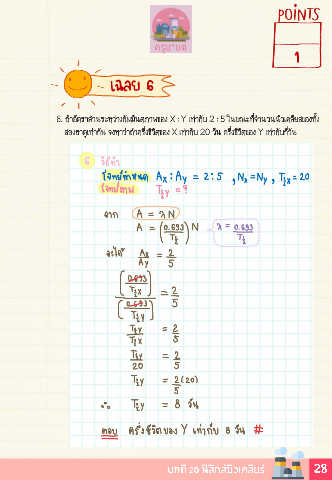 POINTS
1
เฉลย 6
6. ถ้าอัตราส่วนระหว่างกัมมันตภาพของ X : Y เท่ากับ 2 : 5 ในขณะที่จำนวนนิวเคลียสของทั้ง
สองธาตุเท่ากัน จงหาว่าถ้าครึ่งชีวิตของ X เท่ากับ 20 วัน ครึ่งชีวิตของ Y เท่ากับกี่วัน
6 วิธีทำ
โจทย์กำหนด Ax : Ay = 2 : 5 , Nx = Ny , T½x = 20
โจทย์ถาม T½y = ?
จาก A = λN
A = (0.693/T½) N λ = 0.693/T½
จะได้ Ax/Ay = 2/5
(0.693/T½x)/(0.693/T½y) = 2/5
T½y/T½x = 2/5
T½y/20 = 2/5
T½y = 2(20)/5
∴ T½y = 8 วัน
ตอบ ครึ่งชีวิตของ Y เท่ากับ 8 วัน #
บทที่ 20 ฟิสิกส์นิวเคลียร์ 28